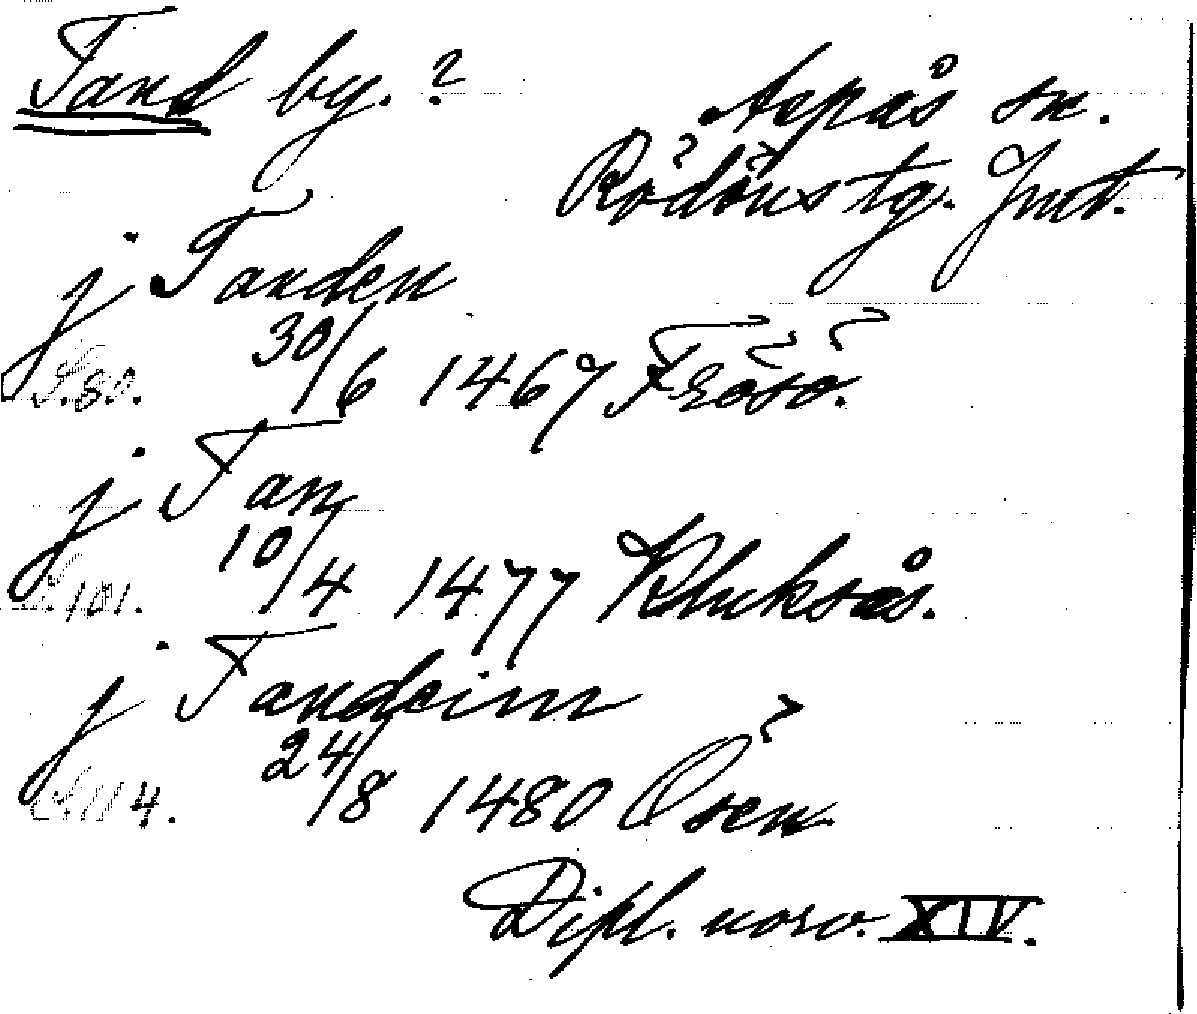 Tand by. ?
Aspås sn.
Rödöns tg. Jmt.
j Tanden
S. 80. 30/6 1467 Frösö.
j Tan
S. 101. 10/4 1477 Kluksås.
j Tandeim
S. 114. 24/8 1480 Ösen
Dipl. norv. XIV.